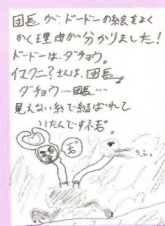 団長が、ドードーの絵をよく
かく理由が分かりました!
ドードーは、ダチョウ。
イマクニ?さんは、団長。
ダチョウー団長…
見えない糸で結ばれて
いたんですネ君。